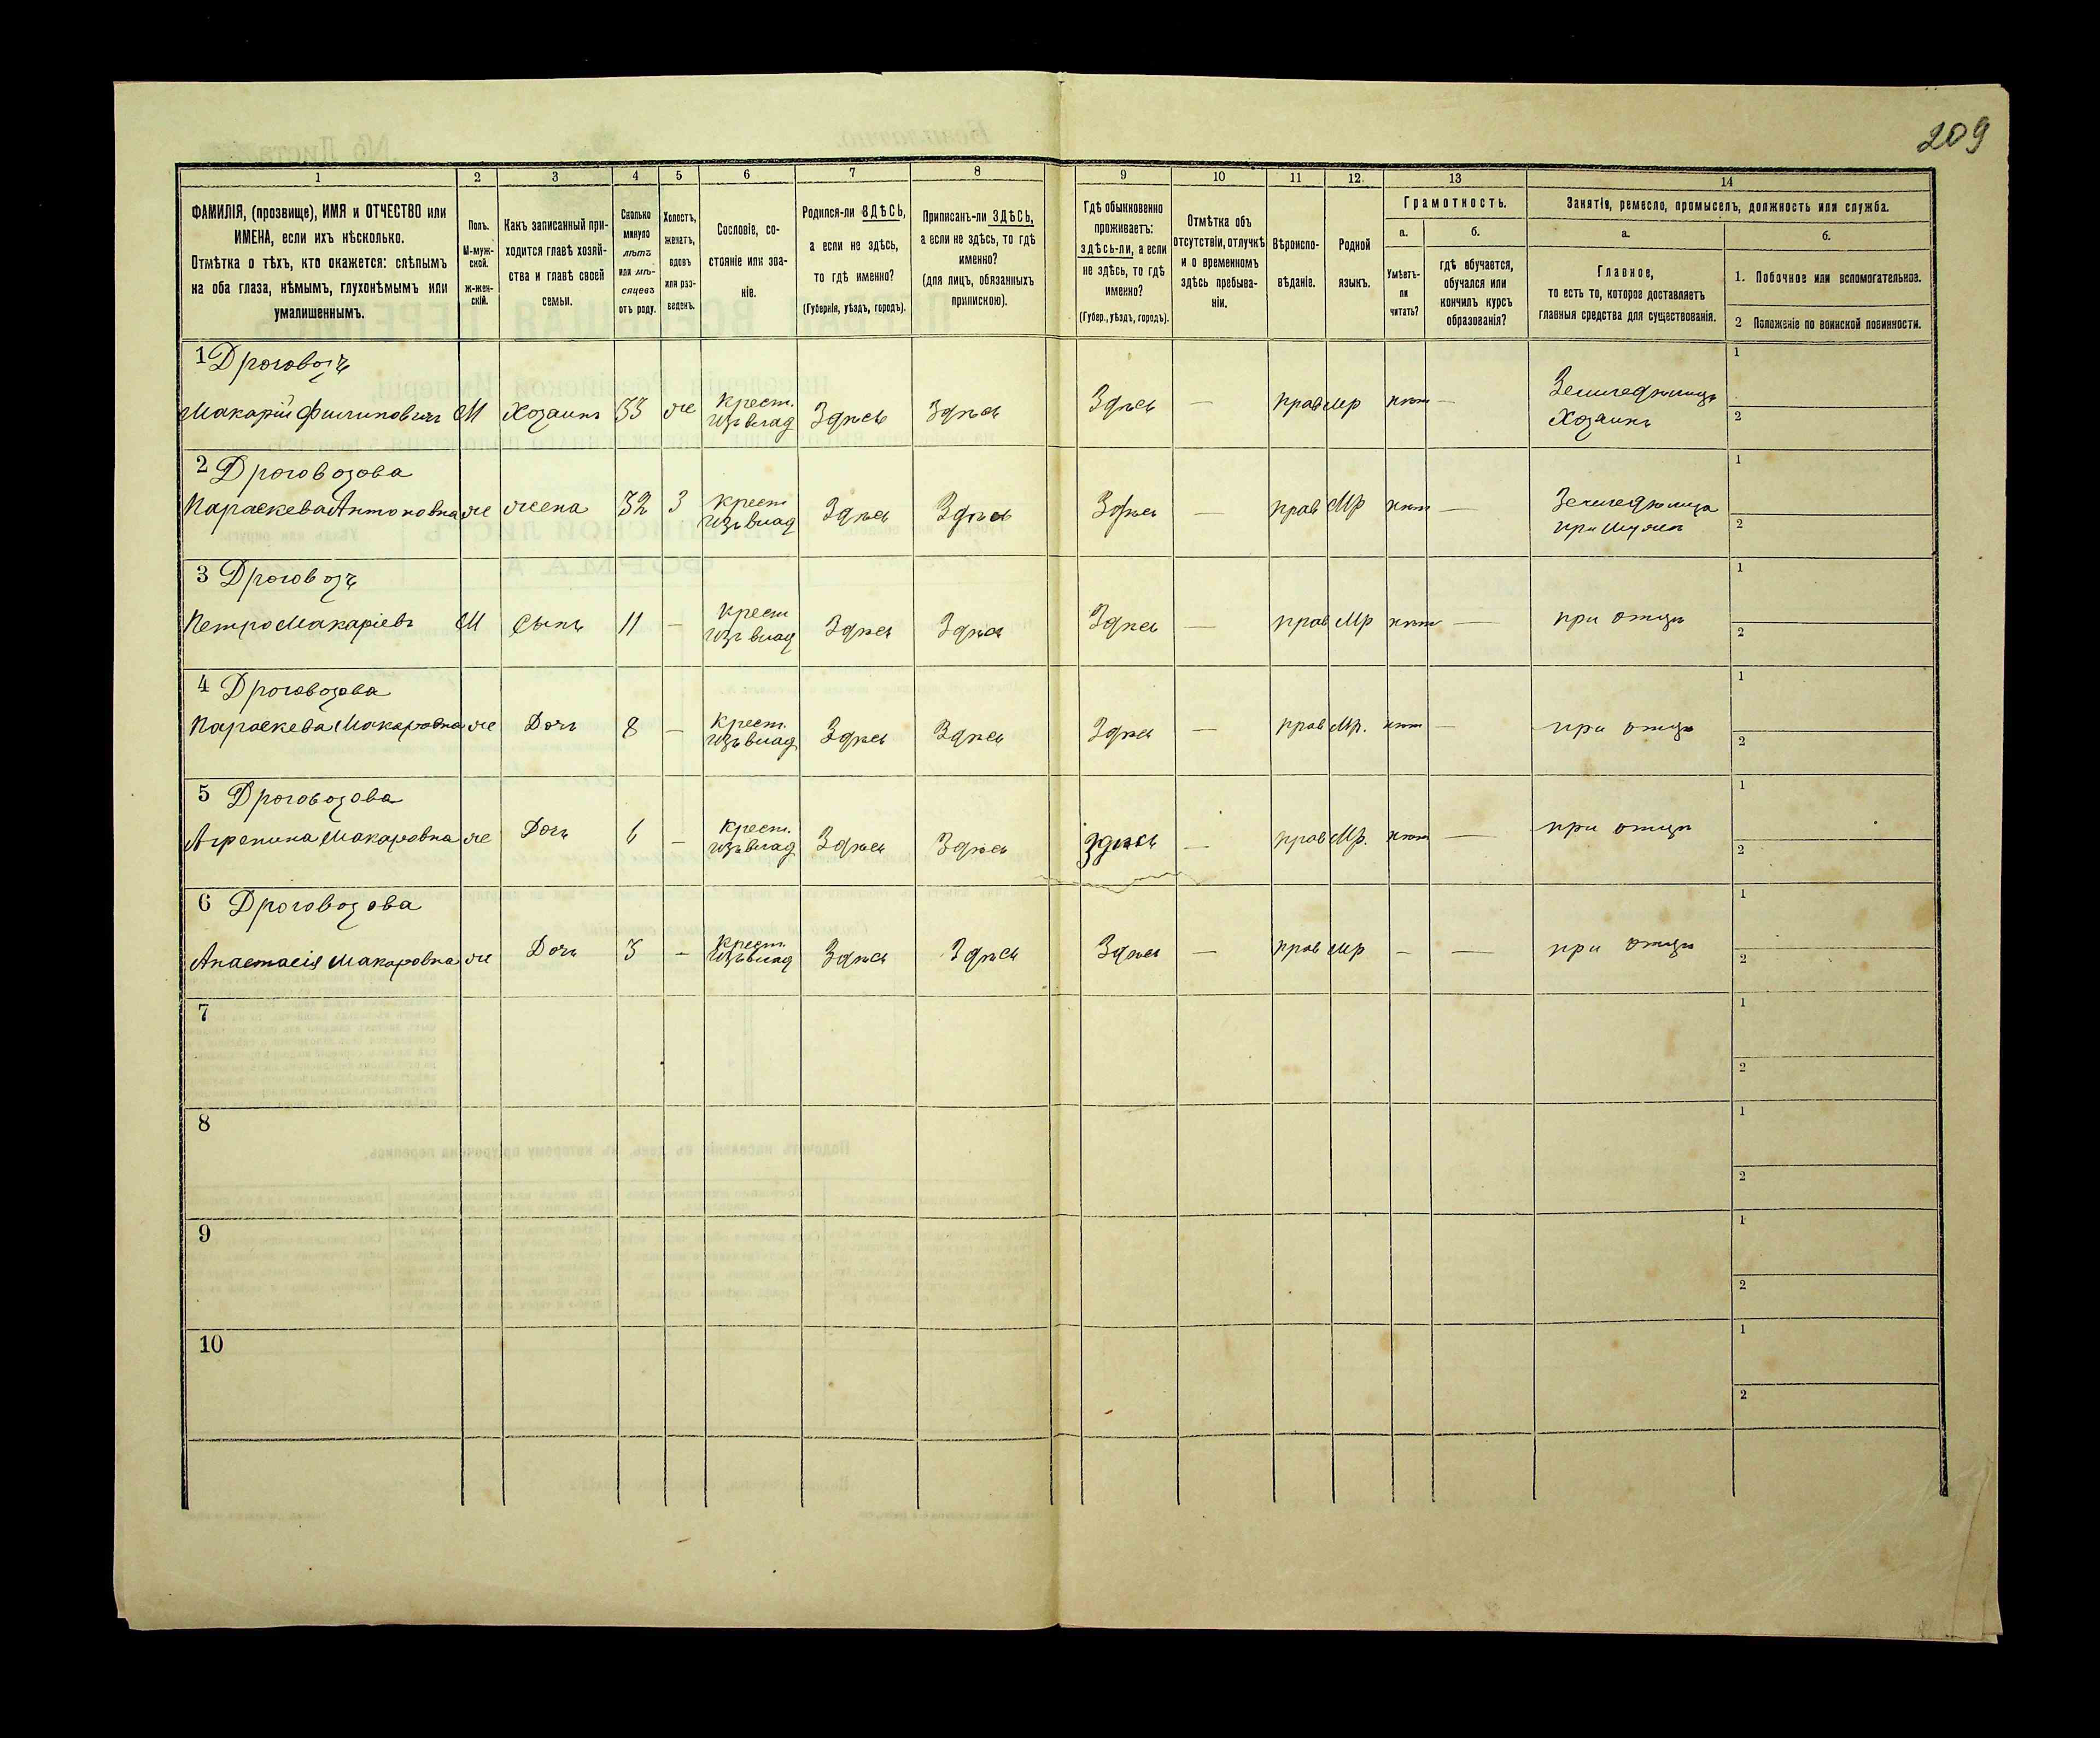 209
1
2
3
4
5
6
7
8
9
10
11
12.
13
14
ФАМИЛІЯ, (прозвище), ИМЯ и ОТЧЕСТВО или
ИМЕНА, если ихъ нѣсколько.
Отмѣтка о тѣхъ, кто окажется: слѣпымъ
на оба глаза, нѣмымъ, глухонѣмымъ или
умалишеннымъ.
Полъ.
М-муж-
ской.
Ж-жен-
скій.
Какъ записанный при-
ходится главѣ хозяй-
ства и главѣ своей
семьи.
Сколько
минуло
лѣтъ
или мѣ-
сяцевъ
отъ роду.
Холостъ,
женатъ,
вдовъ
или раз-
веденъ.
Сословіе, со-
стояніе или зва-
ніе.
Родился-ли ЗДѢСЬ,
а если не здѣсь,
то гдѣ именно?
(Губернія, уѣздъ, городъ).
Приписанъ-ли ЗДѢСЬ,
а если не здѣсь, то гдѣ
именно?
(для лицъ, обязанныхъ
припискою).
Гдѣ обыкновенно
проживаетъ:
здѣсь-ли, а если
не здѣсь, то гдѣ
именно?
(Губер., уѣздъ, городъ).
Отмѣтка объ
отсутствіи, отлучкѣ
и о временномъ
здѣсь пребыва-
ніи.
Вѣроиспо-
вѣданіе.
Родной
языкъ.
Грамотность.
а.
Умѣетъ-
ли
читать?
б.
гдѣ обучается,
обучался или
кончилъ курсъ
образованія?
Занятіе, ремесло, промыселъ, должность или служба.
а.
Главное,
то есть то, которое доставляетъ
главныя средства для существованія.
б.
1. Побочное или вспомогательное.
2 Положеніе по воинской повинности.
1 Дроговозъ
Макарій Филиповичъ М Хозаинъ 33 же Крест. изъ влад Здѣсь Здѣсь Здѣсь — прав Мр нѣт — Земледѣлецъ
Хозаинъ
1
2
2 Дроговозова
Параскева Антоновна же жена 32 З Крест изъ влад Здѣсь Здѣсь Здѣсь — прав Мр нѣт — Земледѣлица
при мужѣ
1
2
3 Дроговозъ
Петро Макаріевъ М Сынъ 11 — Крест изъ влад Здѣсь Здѣсь Здѣсь — прав Мр нѣт — при отцѣ
1
2
4 Дроговозова
Параскева Макаровна же Дочь 8 — Крест. изъ влад Здѣсь Здѣсь Здѣсь — прав Мр. нѣт — при отцѣ
1
2
5 Дроговозова
Агрепина Макаровна же Дочь 6 — Крест. изъ влад Здѣсь Здѣсь Здѣсь — прав Мр. нѣт — при отцѣ
1
2
6 Дроговозова
Анастасія Макаровна же Дочь 3 — Крест. изъ влад Здѣсь Здѣсь Здѣсь — прав Мр — — при отцѣ
1
2
7
1
2
8
1
2
9
1
2
10
1
2